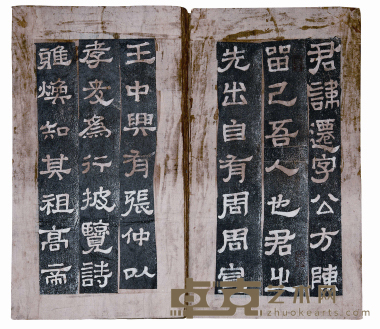 君諱遷字公方陳
留己吾人也君之
先出自有周周宣
王中興有張仲以
孝友為行披覽詩
雅煥知其祖高帝
卓克艺术网
zhuokearts.com